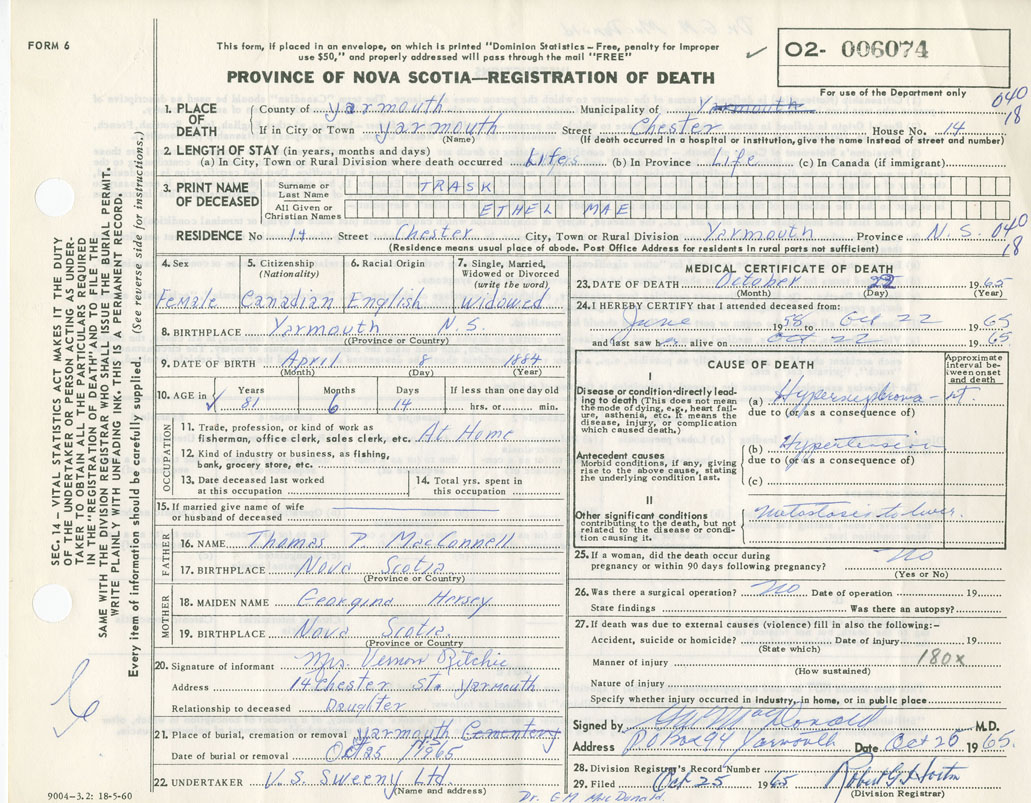 FORM 6
This form, if placed in an envelope, on which is printed "Dominion Statistics – Free, penalty for improper
use $50," and properly addressed will pass through the mail "FREE"
PROVINCE OF NOVA SCOTIA—REGISTRATION OF DEATH
02- 006074
For use of the Department only
040
18
1. PLACE OF DEATH
County of Yarmouth Municipality of Yarmouth
If in City or Town Yarmouth Street Chester House No. 14
(Name) (If death occurred in a hospital or institution, give the name instead of street and number)
2. LENGTH OF STAY (in years, months and days)
(a) In City, Town or Rural Division where death occurred Life (b) In Province Life (c) In Canada (if immigrant)
3. PRINT NAME OF DECEASED
Surname or Last Name TRASK
All Given or Christian Names ETHEL MAE
RESIDENCE No 14 Street Chester City, Town or Rural Division Yarmouth Province N.S. 040
18
(Residence means usual place of abode. Post Office Address for residents in rural parts not sufficient)
4. Sex Female
5. Citizenship (Nationality) Canadian
6. Racial Origin English
7. Single, Married, Widowed or Divorced (write the word) Widowed
8. BIRTHPLACE Yarmouth N.S.
(Province or Country)
9. DATE OF BIRTH April 8 1884
(Month) (Day) (Year)
10. AGE in Years 81 Months 6 Days 14 If less than one day old hrs. or min.
OCCUPATION
11. Trade, profession, or kind of work as
fisherman, office clerk, sales clerk, etc. At Home
12. Kind of industry or business, as fishing,
bank, grocery store, etc.
13. Date deceased last worked
at this occupation
14. Total yrs. spent in
this occupation
15. If married give name of wife
or husband of deceased
FATHER
16. NAME Thomas P MacConnell
17. BIRTHPLACE Nova Scotia
(Province or Country)
MOTHER
18. MAIDEN NAME Georgina Hersey
19. BIRTHPLACE Nova Scotia
(Province or Country)
20. Signature of informant Mrs. Vernon Ritchie
Address 14 Chester St. Yarmouth
Relationship to deceased Daughter
21. Place of burial, cremation or removal Yarmouth Cementery
Date of burial or removal Oct 25 1965
22. UNDERTAKER V.S. Sweeny Ltd.
(Name and address)
9004–3.2: 18-5-60
MEDICAL CERTIFICATE OF DEATH
23. DATE OF DEATH October 22 1965
(Month) (Day) (Year)
24. I HEREBY CERTIFY that I attended deceased from:
June 1958 to Oct 22 1965
and last saw her alive on Oct 22 1965
CAUSE OF DEATH
Approximate interval between onset and death
I
Disease or condition directly leading to death (This does not mean the mode of dying, e.g., heart failure, asthenia, etc. It means the disease, injury, or complication which caused death.)
(a) Hypernephroma - rt.
due to (or as a consequence of)
Antecedent causes
Morbid conditions, if any, giving rise to the above cause, stating the underlying condition last.
(b) Hypertension
due to (or as a consequence of)
(c)
II
Other significant conditions
contributing to the death, but not related to the disease or condition causing it.
25. If a woman, did the death occur during
pregnancy or within 90 days following pregnancy? No
(Yes or No)
26. Was there a surgical operation? No Date of operation 19
State findings Was there an autopsy?
27. If death was due to external causes (violence) fill in also the following:–
Accident, suicide or homicide? Date of injury 19
(State which)
Manner of injury 180x
(How sustained)
Nature of injury
Specify whether injury occurred in industry, in home, or in public place
Signed by G M MacDonald M.D.
Address P O Box 94 Yarmouth Date Oct 25 1965.
28. Division Registrar's Record Number
29. Filed Oct 25 1965 Robert G Horton
(Division Registrar)
Dr. G.M. MacDonald.
SEC. 14 – VITAL STATISTICS ACT MAKES IT THE DUTY
OF THE UNDERTAKER OR PERSON ACTING AS UNDER-
TAKER TO OBTAIN ALL THE PARTICULARS REQUIRED
IN THE "REGISTRATION OF DEATH" AND TO FILE THE
SAME WITH THE DIVISION REGISTRAR WHO SHALL ISSUE THE BURIAL PERMIT.
WRITE PLAINLY WITH UNFADING INK. THIS IS A PERMANENT RECORD.
Every item of information should be carefully supplied. (See reverse side for instructions.)